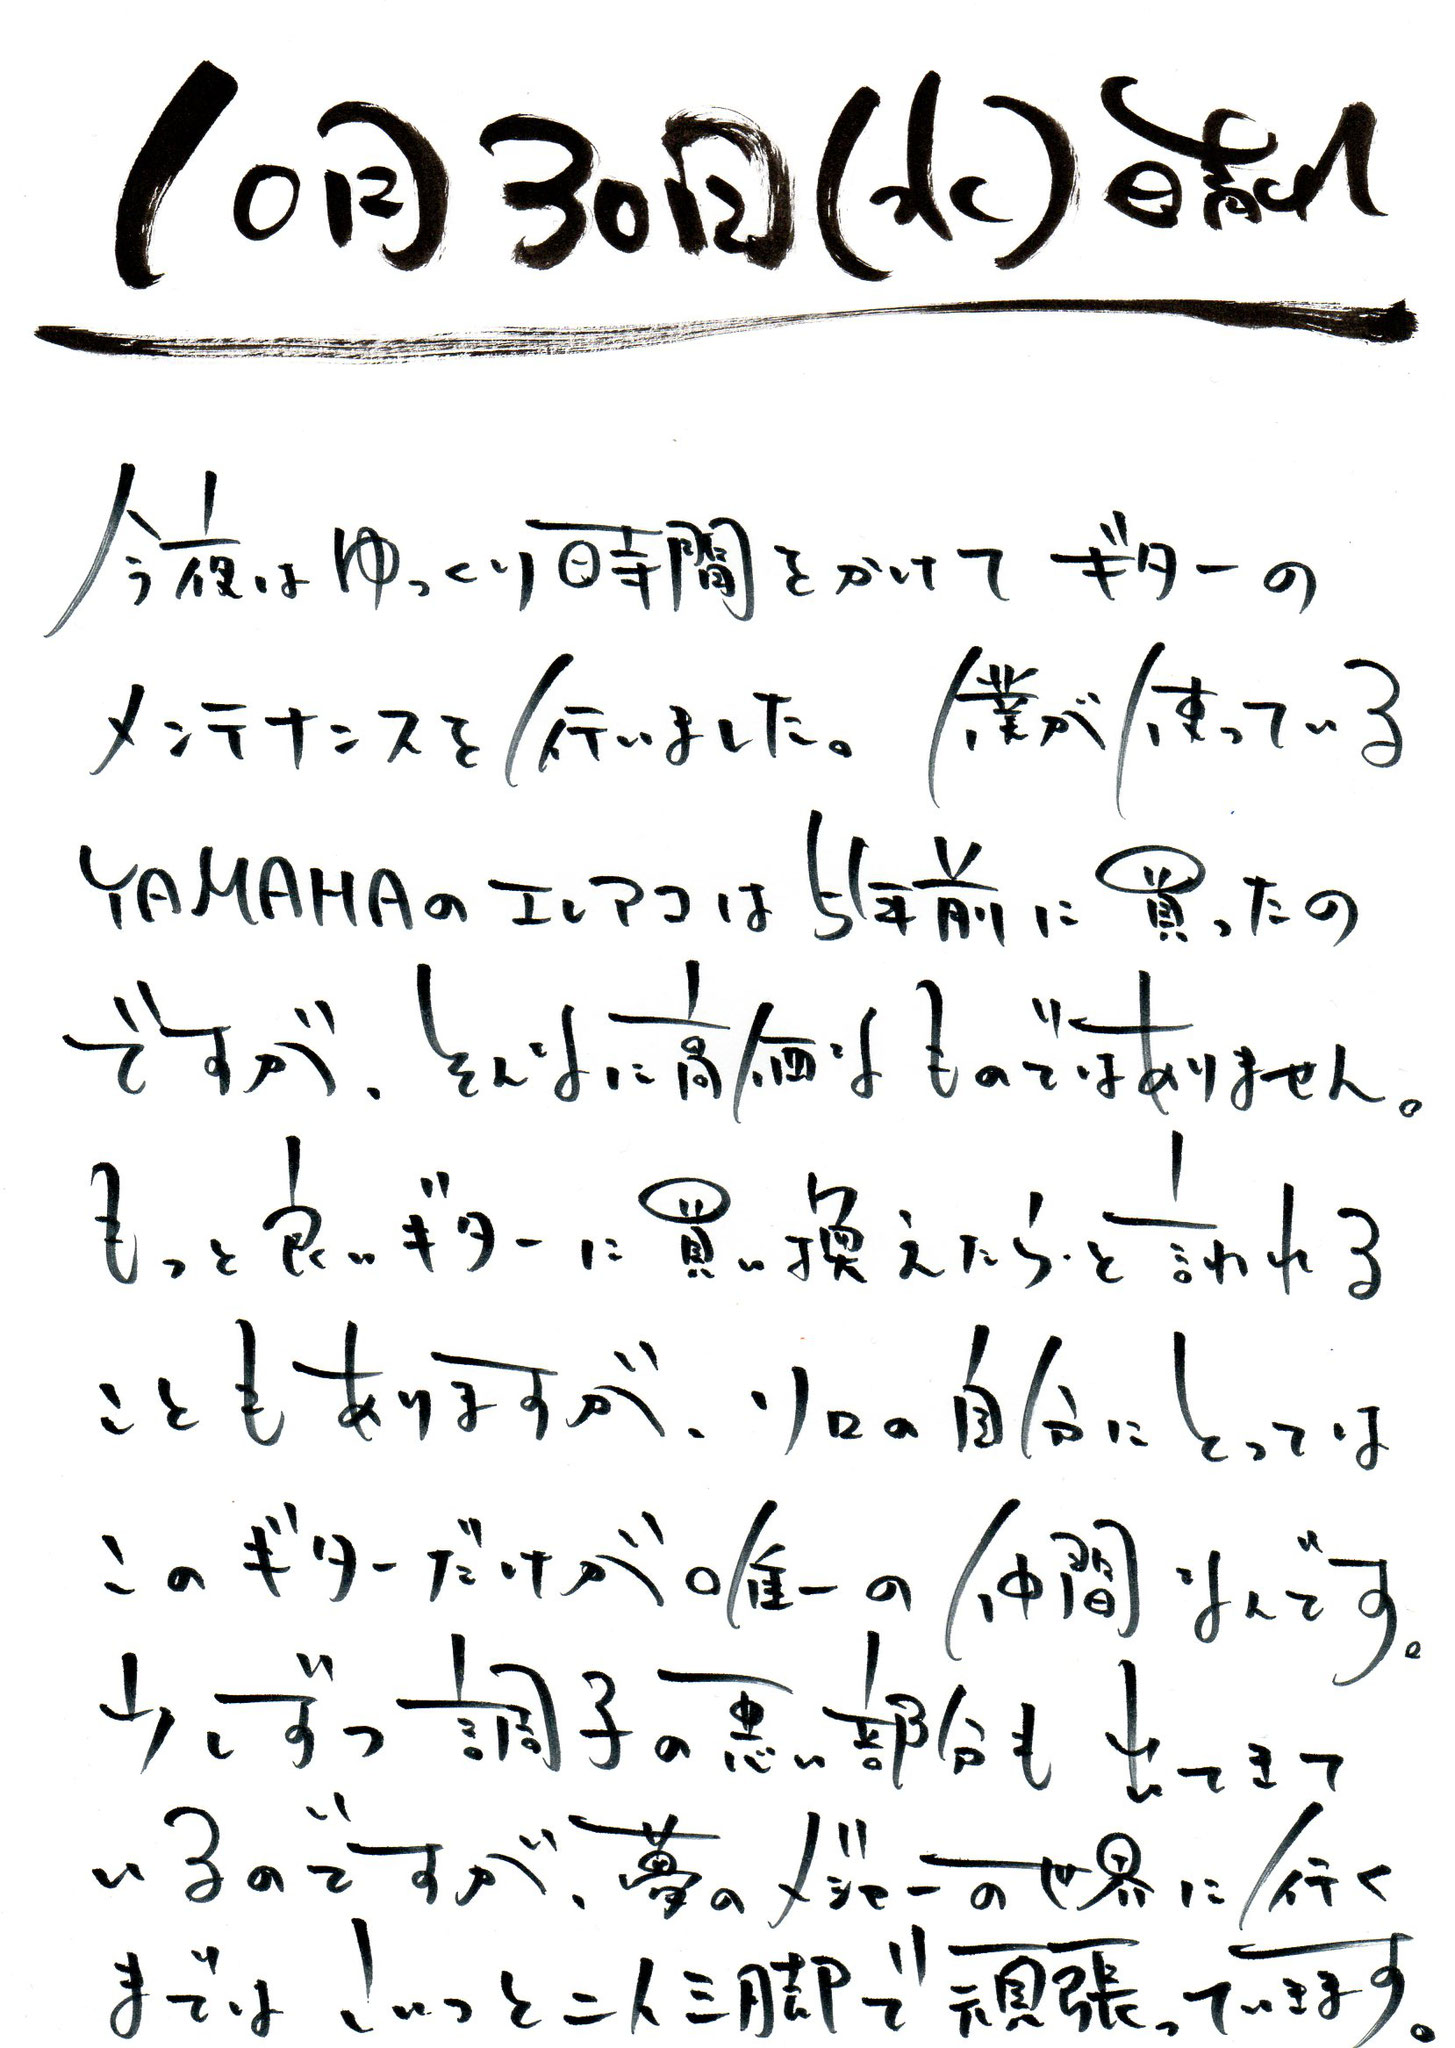 10月30日(水)晴れ
今夜はゆっくり時間をかけて ギターの
メンテナンスを行いました。 僕が使っている
YAMAHAのエレアコは5年前に買ったの
ですが、そんなに高価なものではありません。
もっと良いギターに買い換えたらと言われる
こともありますが、ソロの自分にとっては
このギターだけが唯一の仲間なんです。
少しずつ調子の悪い部分も出てきて
いるのですが、夢のメジャーの世界に行く
まではこいつと二人三脚で頑張っていきます。